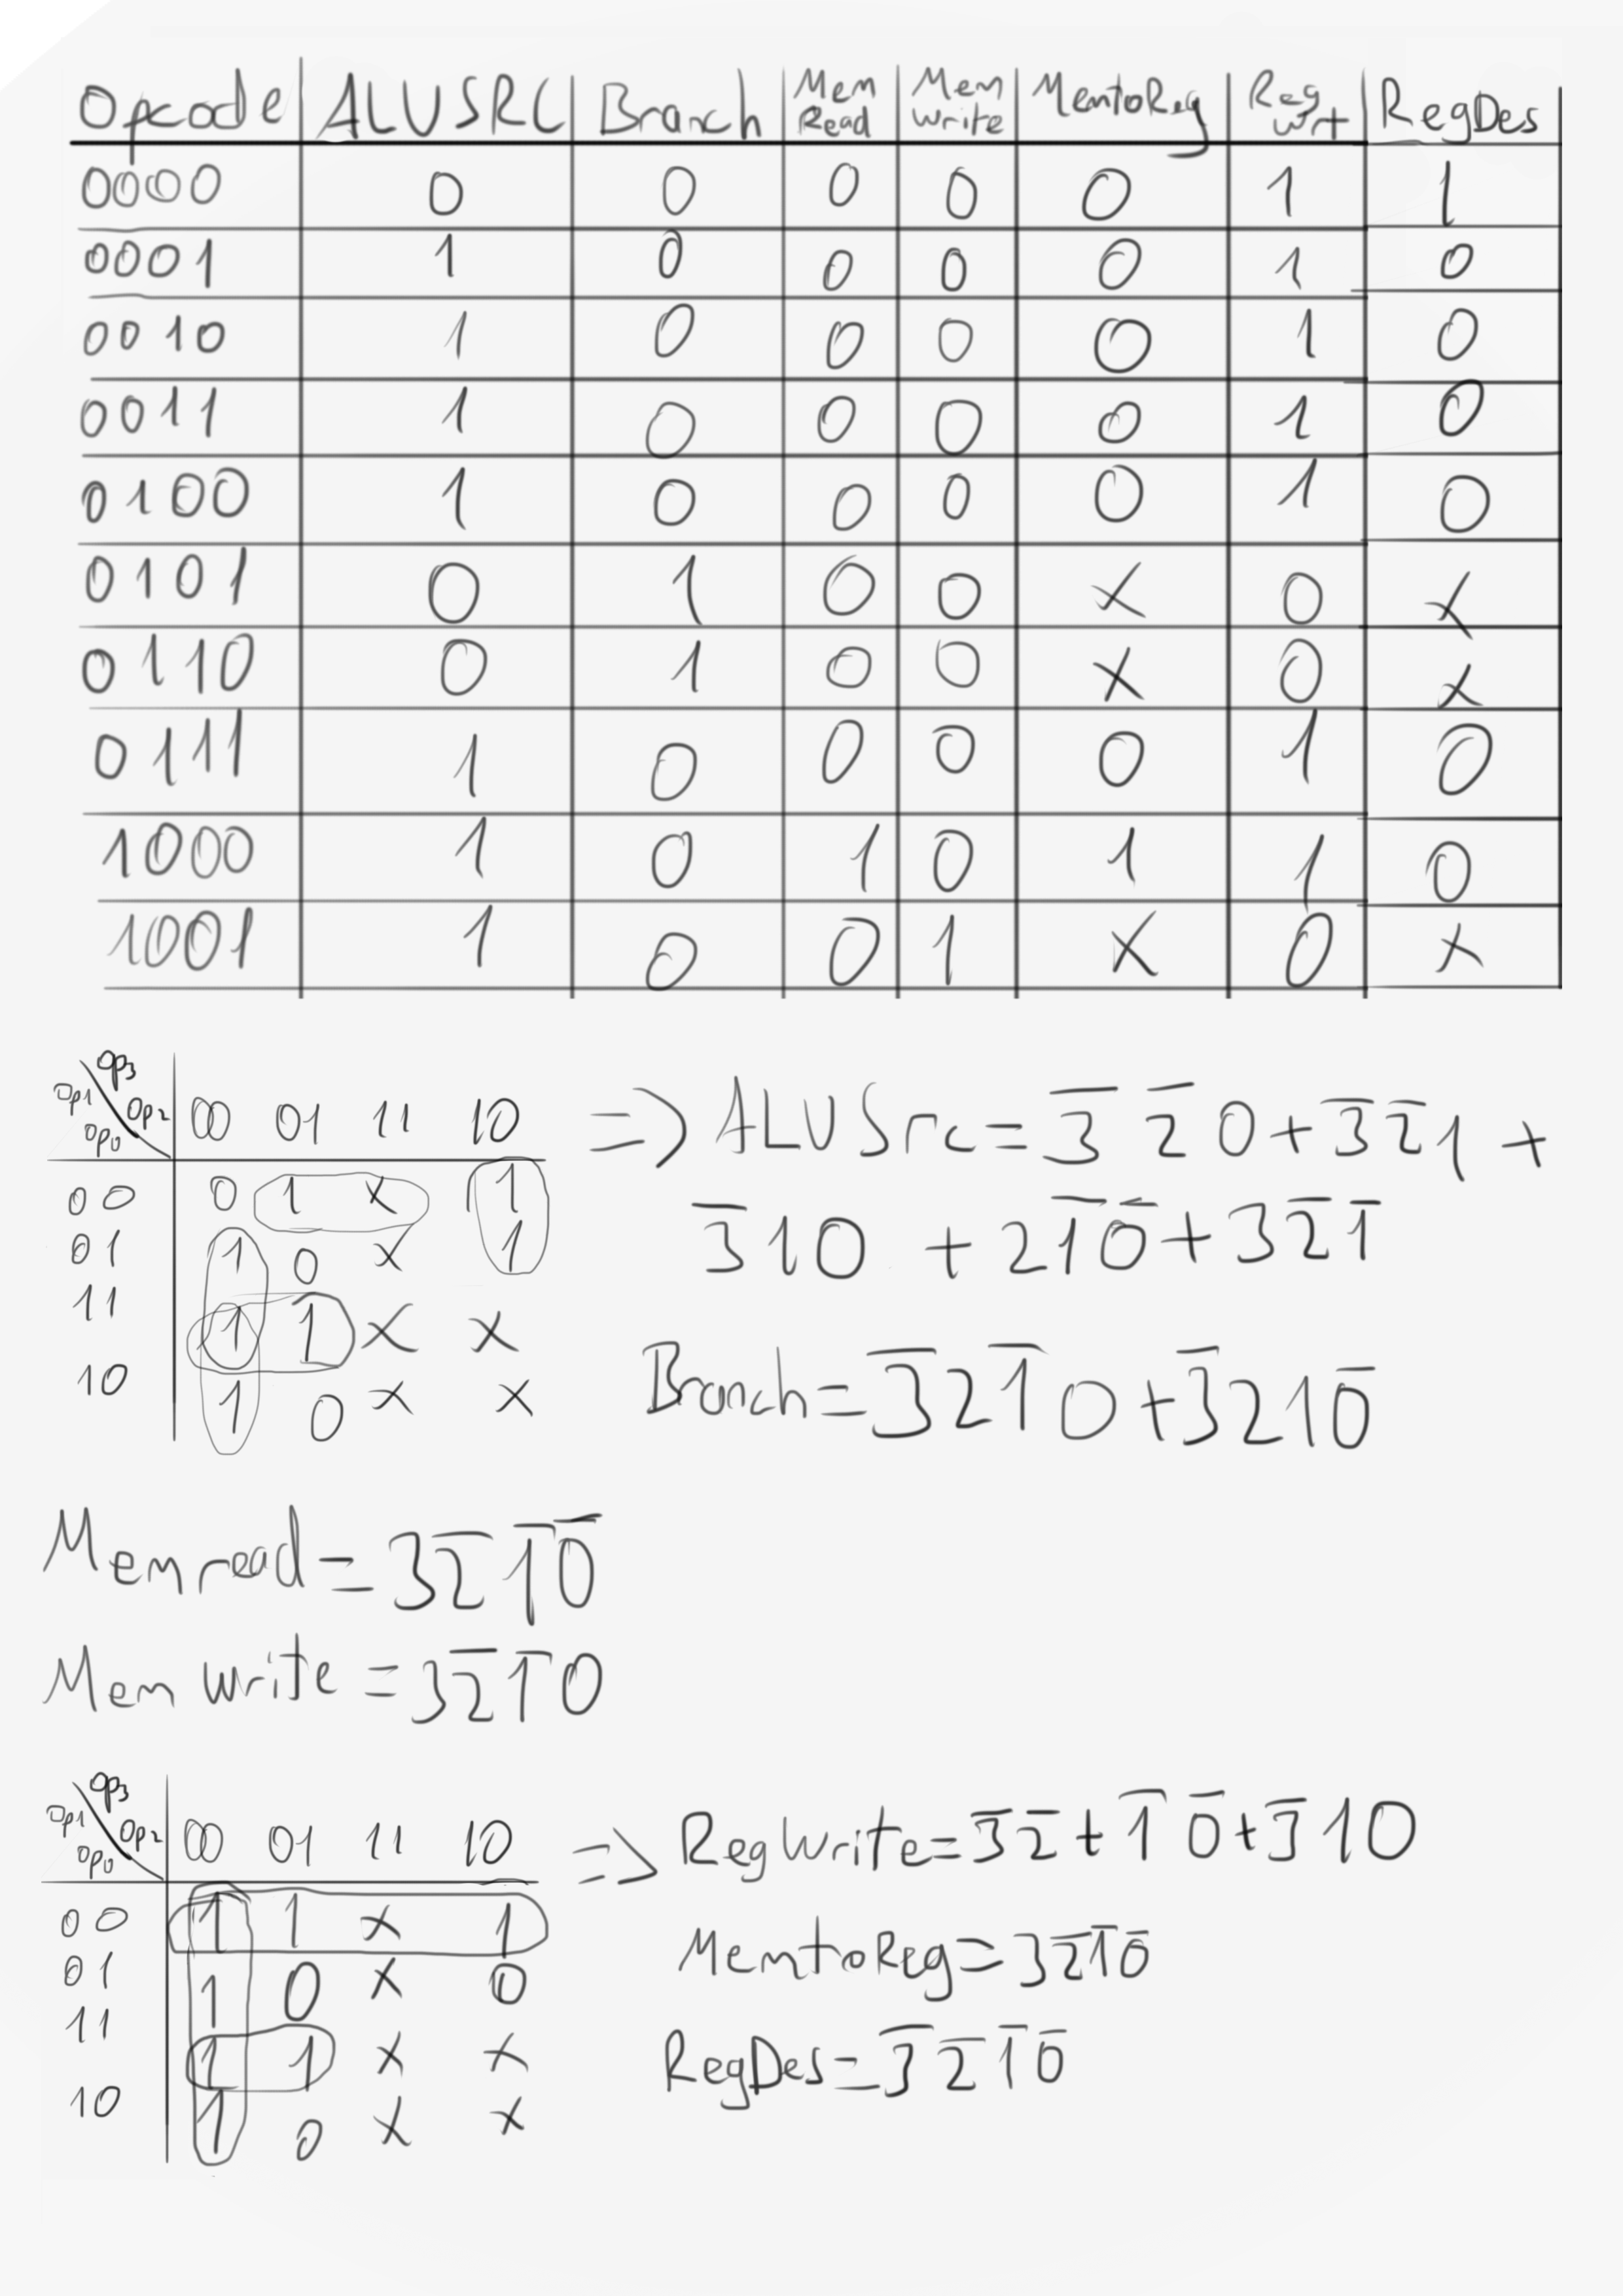 Opcode ALUSRC Branch Mem Read Mem Write MemtoReg Reg Wrt RegDes
0000 0 0 0 0 0 1 1
0001 1 0 0 0 0 1 0
0010 1 0 0 0 0 1 0
0011 1 0 0 0 0 1 0
0100 1 0 0 0 0 1 0
0101 0 1 0 0 X 0 X
0110 0 1 0 0 X 0 X
0111 1 0 0 0 0 1 0
1000 1 0 1 0 1 1 0
1001 1 0 0 1 X 0 X
Op3 Op2 Op1 Op0 00 01 11 10
00 0 1 X 1
01 1 0 X 1
11 1 1 X X
10 1 0 X X
=> ALUSrc = 3̅ 2̅ 0 + 3̅ 2̅ 1 +
3̅ 1 0 + 2 1̅ 0̅ + 3 2̅ 1̅
Branch = 3̅ 2 1̅ 0 + 3̅ 2 1 0̅
Memread = 3 2̅ 1̅ 0̅
Mem write = 3 2̅ 1̅ 0
Op3 Op2 Op1 Op0 00 01 11 10
00 1 1 X 1
01 1 0 X 0
11 1 1 X X
10 1 0 X X
=> RegWrite = 3̅ 2̅ + 1̅ 0̅ + 3̅ 1 0
MemtoReg = 3 2̅ 1̅ 0̅
RegDes = 3̅ 2̅ 1̅ 0̅